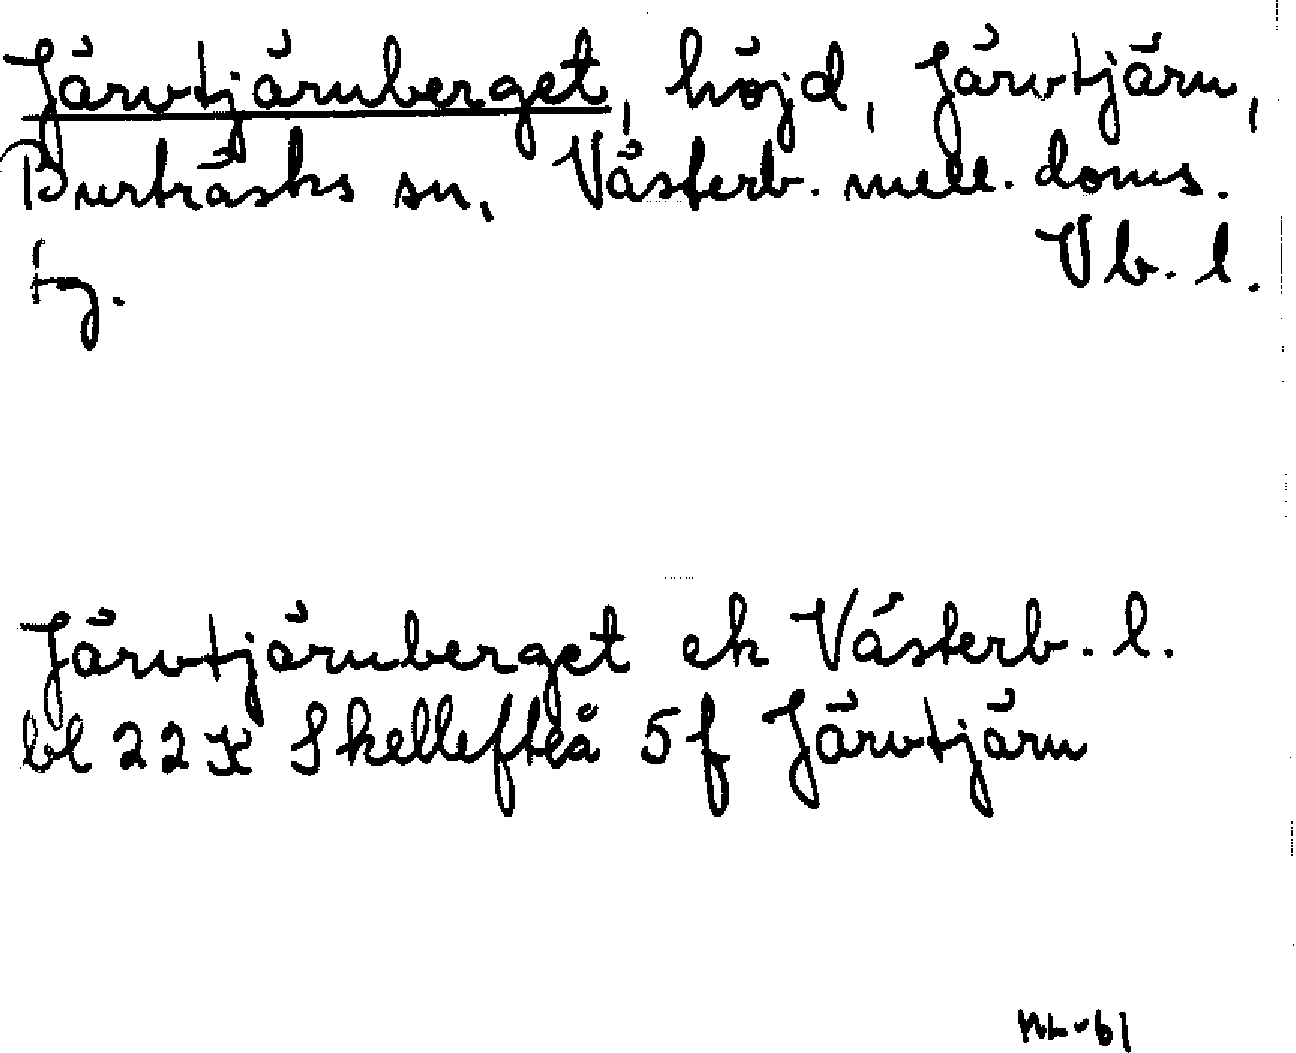 Järvtjärnberget, höjd, Järvtjärn,
Burträsks sn, Västerb. mell. doms.
tg. Vb. l.
Järvtjärnberget ek Västerb. l.
bl 22K Skellefteå 5f Järvtjärn
NL-61